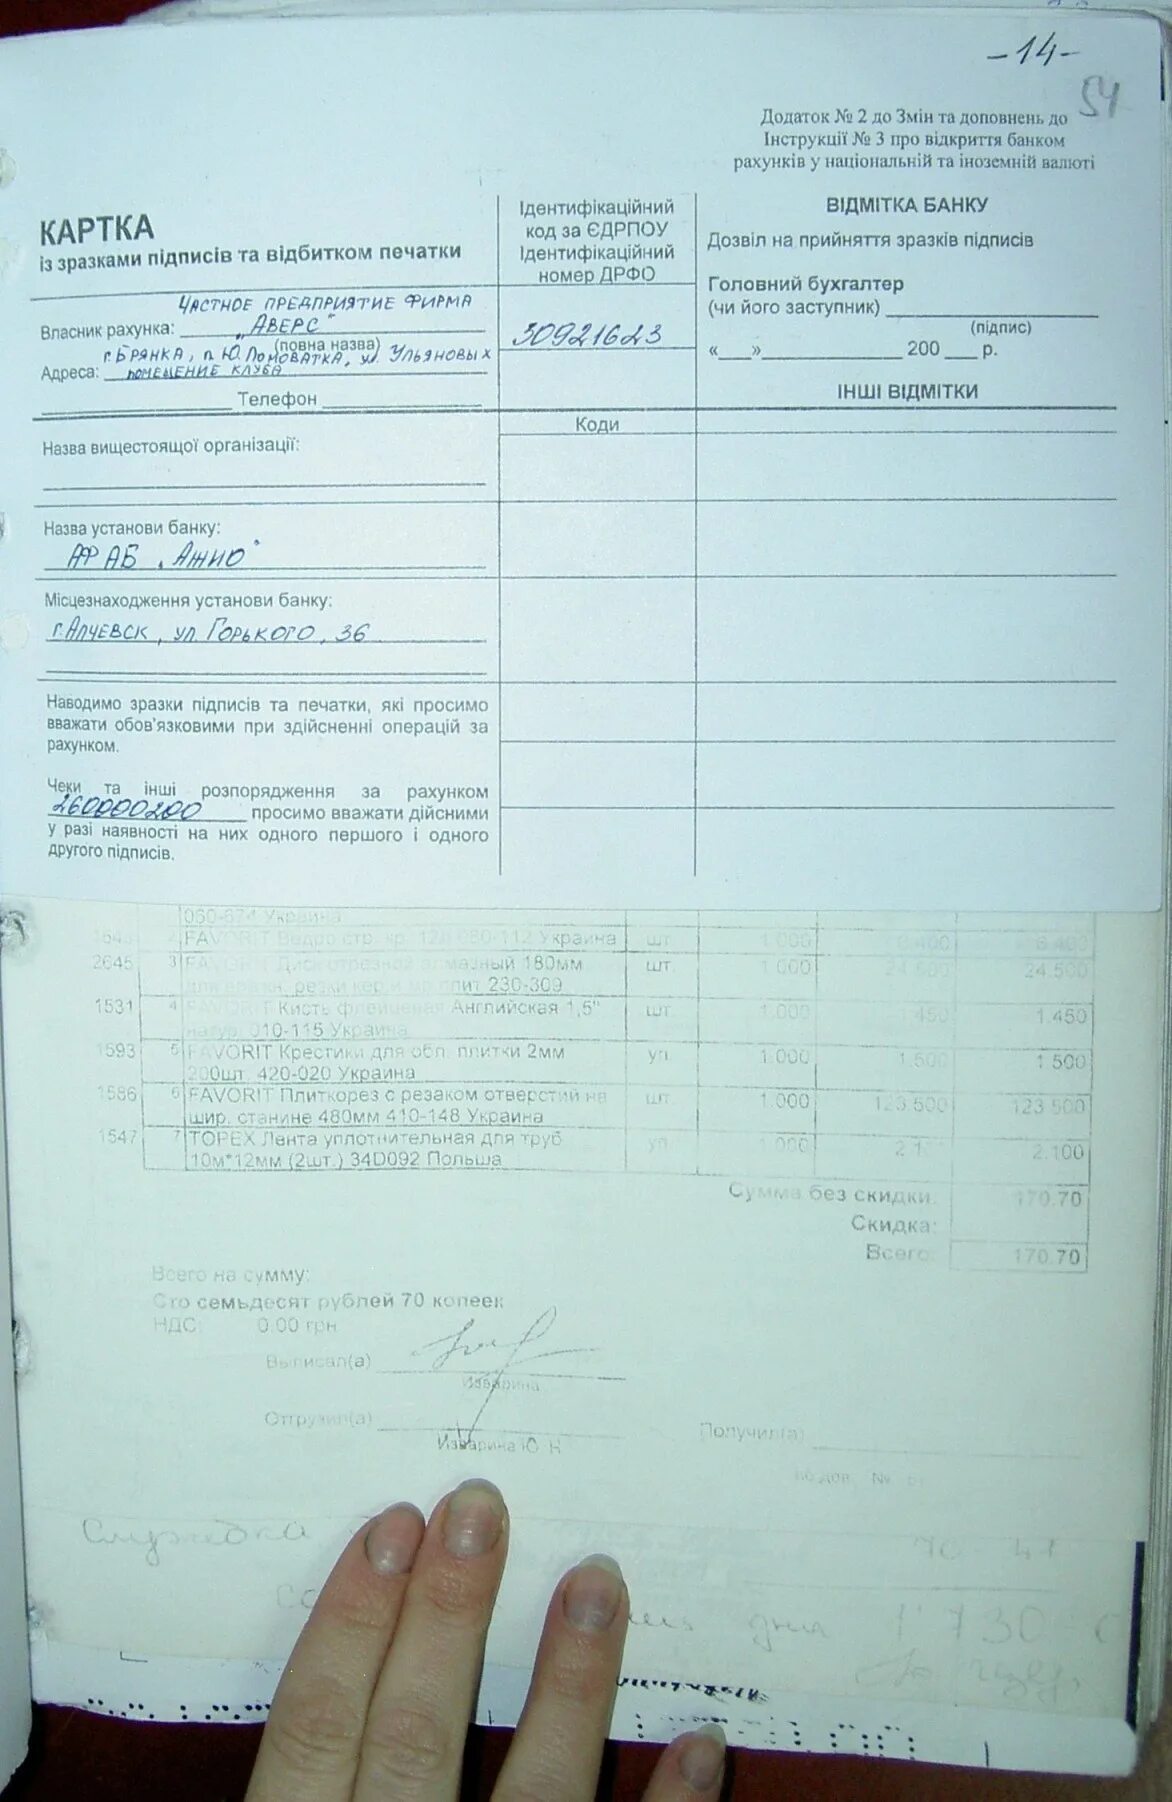 -14-
54
Додаток № 2 до Змін та доповнень до
Інструкції № 3 про відкриття банком
рахунків у національній та іноземній валюті
КАРТКА
із зразками підписів та відбитком печатки
Частное предприятие фирма
Власник рахунка: „Аверс"
(повна назва)
г. Брянка, п. Ю. Ломоватка, ул. Ульяновых
Адреса: помещение клуба
Телефон
Ідентифікаційний
код за ЄДРПОУ
Ідентифікаційний
номер ДРФО
30921623
ВІДМІТКА БАНКУ
Дозвіл на прийняття зразків підписів
Головний бухгалтер
(чи його заступник)
(підпис)
«___» 200 ___ р.
ІНШІ ВІДМІТКИ
Коди
Назва вищестоящої організації:
Назва установи банку:
АФ АБ „Ажио"
Місцезнаходження установи банку:
г. Алчевск, ул. Горького, 36
Наводимо зразки підписів та печатки, які просимо
вважати обов'язковими при здійсненні операцій за
рахунком.
Чеки та інші розпорядження за рахунком
260000200 просимо вважати дійсними
у разі наявності на них одного першого і одного
другого підписів.
060-674 Украина
FAVORIT Ведро стр. кр. 12л 060-112 Украина шт 1.000
2645 3 FAVORIT Диск отрезной алмазный 180мм шт. 1.000 24.500 24.500
плит 230-309
1531 4 FAVORIT Кисть флейцевая Английская 1,5" шт. 1.000 1.450 1.450
натур. 010-115 Украина
1593 5 FAVORIT Крестики для обл. плитки 2мм уп. 1.000 1.500 1.500
200шт. 420-020 Украина
1586 6 FAVORIT Плиткорез с резаком отверстий на шт. 1.000 123.500 123.500
шир. станине 480мм 410-148 Украина
1547 7 TOPEX Лента уплотнительная для труб уп. 1.000 2.100
10м*12мм (2шт.) 34D092 Польша
Сумма без скидки: 170.70
Скидка:
Всего: 170.70
Всего на сумму:
Сто семьдесят рублей 70 копеек
НДС: 0.00 грн
Выписал(а)
Изварина
Отгрузил(а)
Изварина Ю. Н.
Получил(а)
по дов. №
Служебка
дня 1730